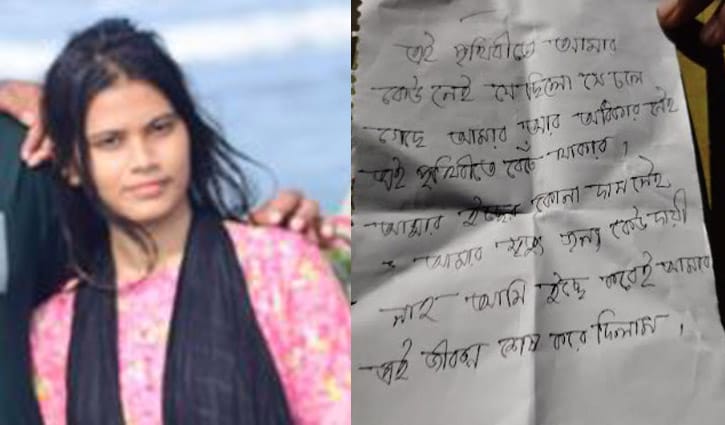 এই পৃথিবীতে আমার
কেউ নেই যে ছিলো সে চলে
গেছে আমার আর অধিকার নেই
এই পৃথিবীতে বেঁচে থাকার ।
আমার ইচ্ছের কোনো দাম নেই
আমার মৃত্যুর জন্য কেউ দায়ী
নাই আমি ইচ্ছে করেই আমার
এই জীবন শেষ করে দিলাম ।